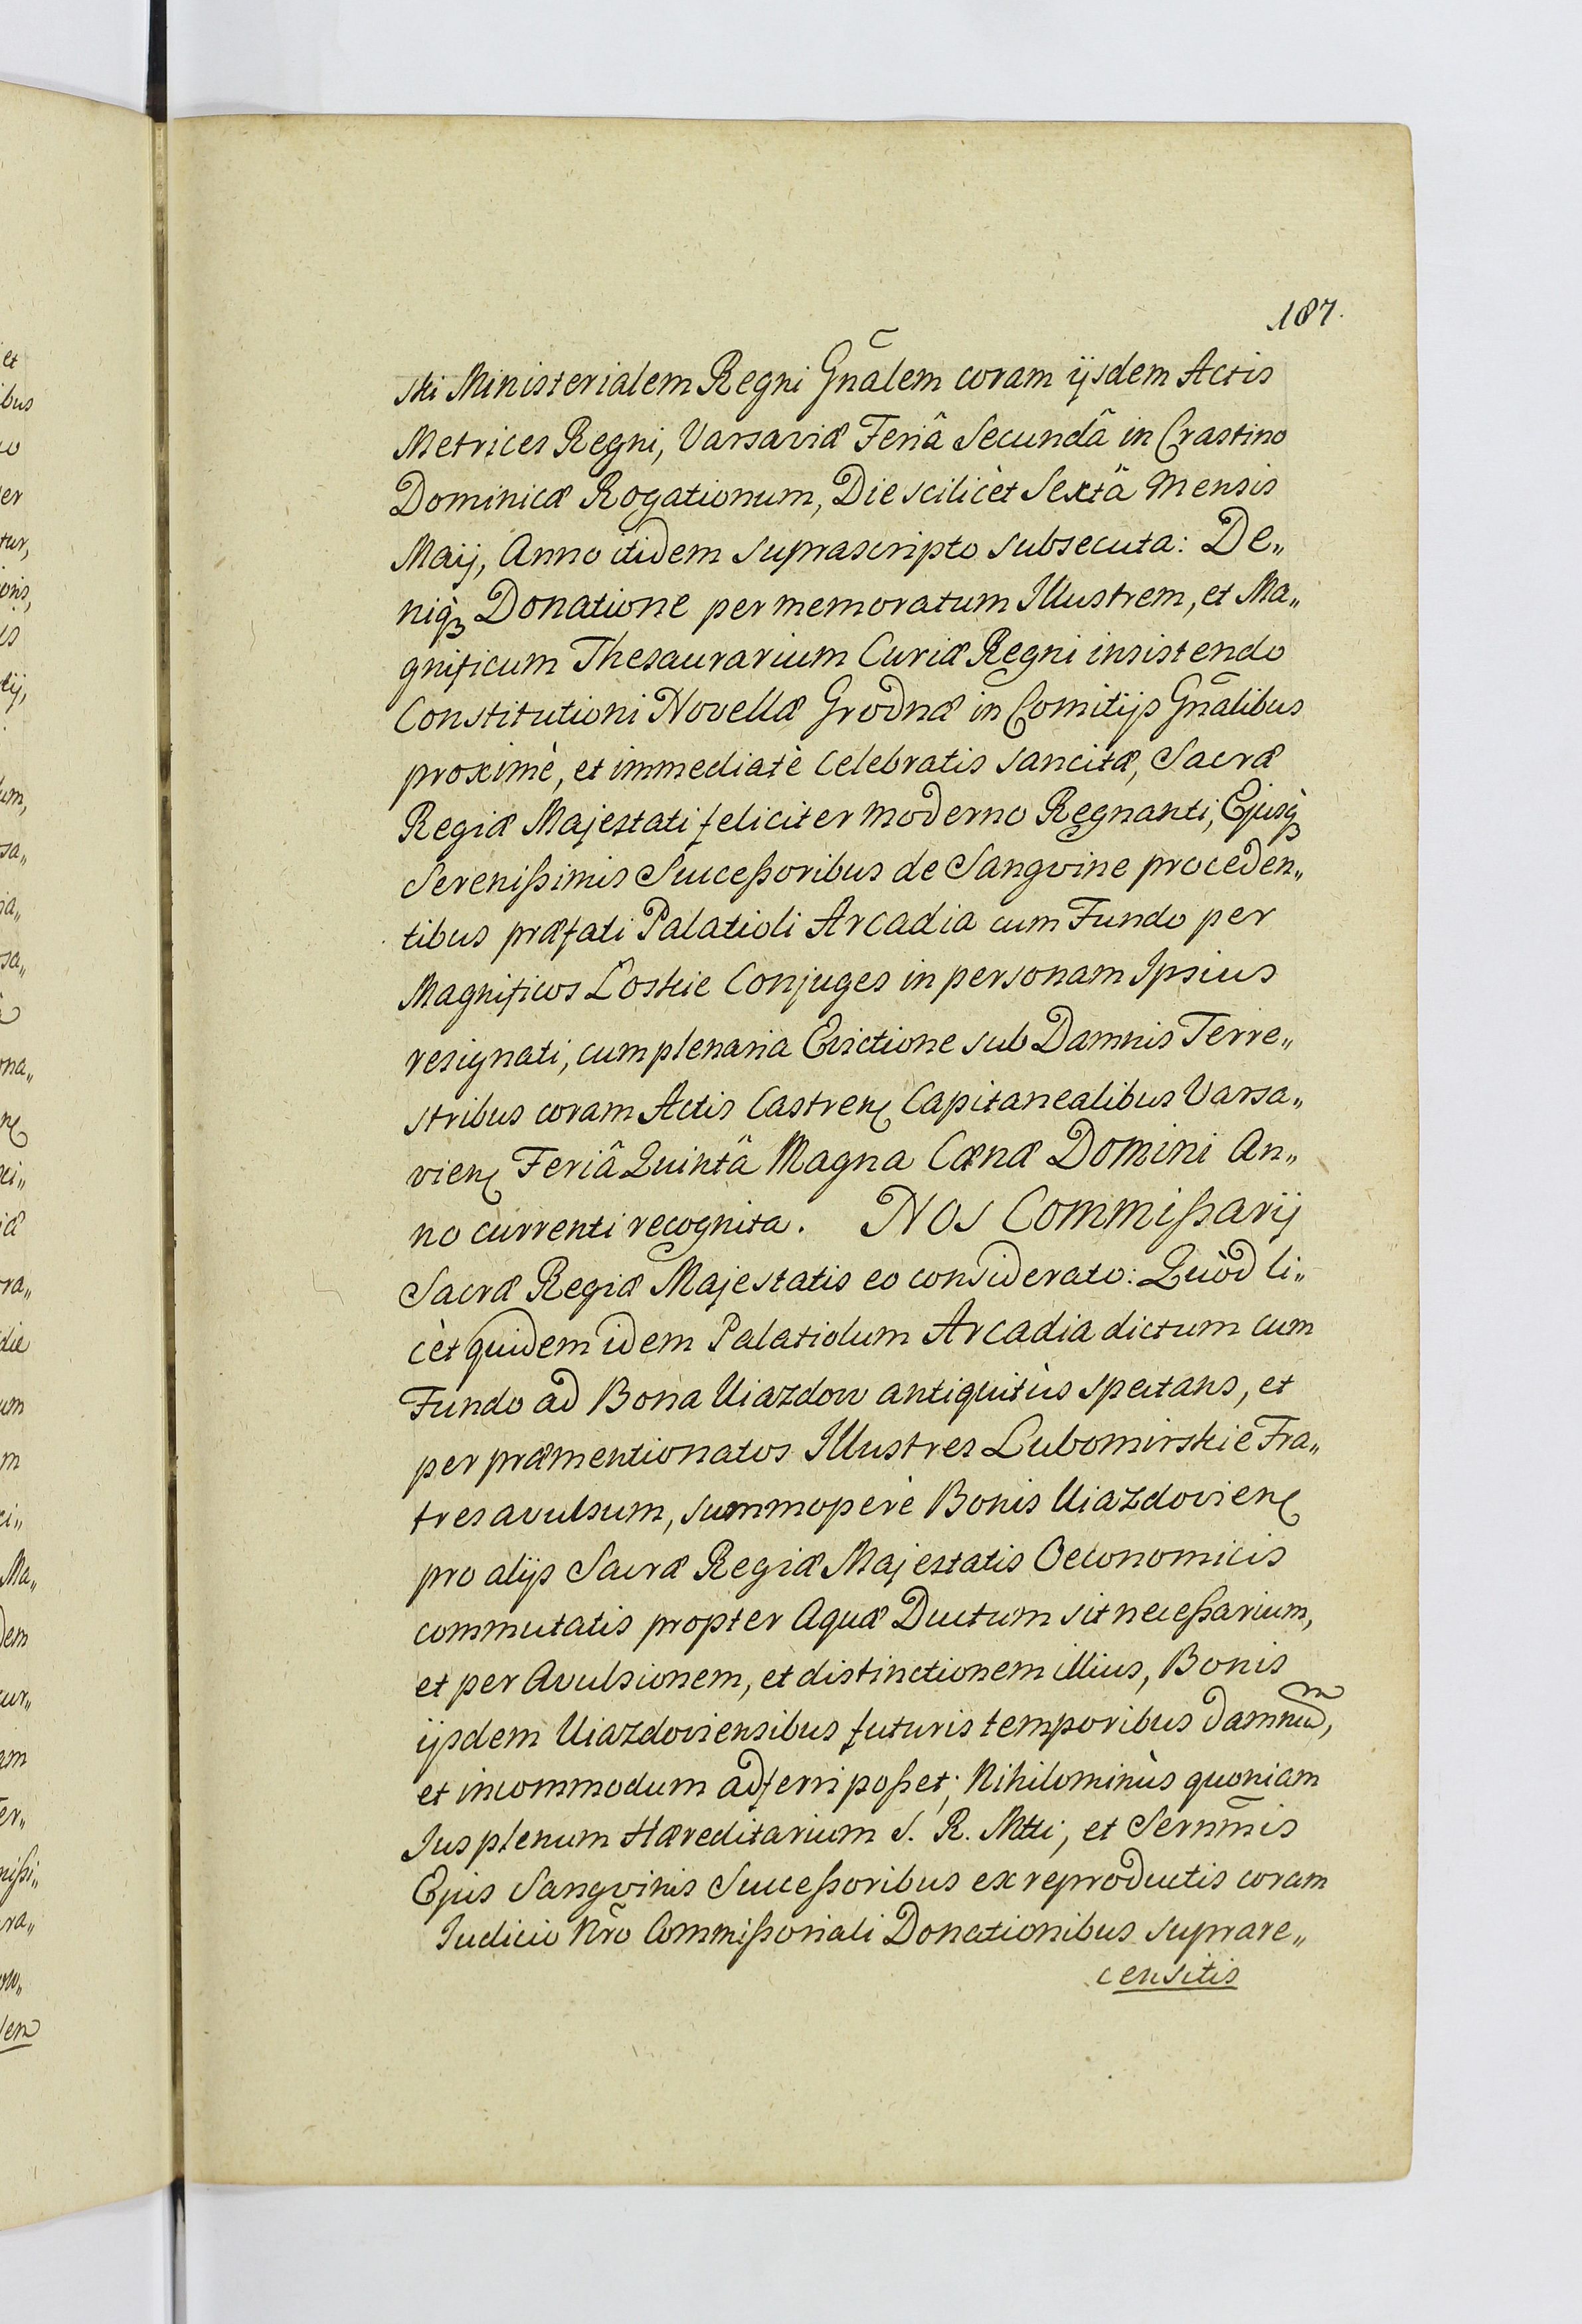 187.
ski Ministerialem Regni Gnãlem coram ijsdem Actis
Metrices Regni, Varsaviæ Feriâ Secundâ in Crastino
Dominicæ Rogationum, Die scilicèt Sextâ Mensis
Maij, Anno itidem suprascripto subsecuta: De„
niqꝫ Donatione per memoratum Illustrem, et Ma„
gnificum Thesaurarium Curiæ Regni insistendo
Constitutioni Novellæ Grodnæ in Comitijs Gnãlibus
proximè, et immediatè celebratis sancitæ, Sacræ
Regiæ Majestati feliciter moderno Regnanti, Ejusqꝫ
Serenißimis Succeßoribus de Sangvine proceden„
tibus præfati Palatioli Arcadia cum Fundo per
Magnificos Łoskie Conjuges in personam Ipsius
resignati, cum plenaria Evictione sub Damnis Terre„
stribus coram Actis Castren Capitanealibus Varsa„
vien Feriâ Quintâ Magna Cænæ Domini An„
no currenti recognita. Nos Commißarij
Sacræ Regiæ Majestatis eo considerato: Quòd li„
cèt quidem idem Palatiolum Arcadia dictum cum
Fundo ad Bona Uiazdow antiquitùs spectans, et
per præmentionatos Illustres Lubomirskie Fra„
tres avulsum, summoperè Bonis Uiazdovien
pro alijs Sacræ Regiæ Majestatis Oeconomicis
commutatis propter Aquæ Ductum sit neceßarium,
et per Avulsionem, et distinctionem illius, Bonis
ijsdem Uiazdoviensibus futuris temporibus damnum,
et incommodum adferri poßet; Nihilominùs quoniam
Jus plenum Hæreditarium S. R. Mtti, et Sernm̃is
Ejus Sangvinis Succeßoribus ex reproductis coram
Judicio Nrõ Commißoriali Donationibus suprare„
censitis
et
ibus
er
tur,
onis,
is
tij,
um,
sa„
ia„
sa„
ona„
ra„
die
um
m
ci„
Ma„
dem
cur„
am
er„
nißi„
ra„